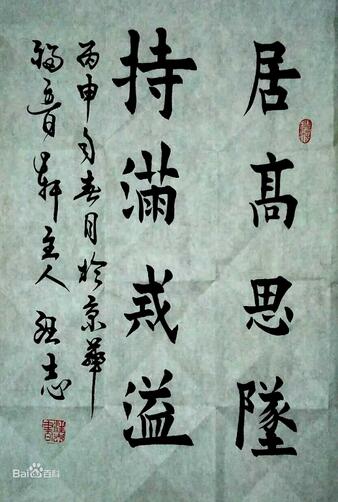 居高思墜
持滿戒溢
丙申年春月於京華
福音軒主人 志
Bai 百科